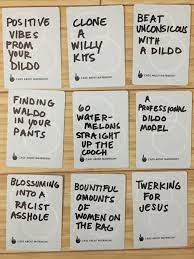 POSITIVE
VIBES
FROM
YOUR
DILDO
CLONE
A
WILLY
KITS
BEAT
UNCONSIOUS
WITH A
DILDO
FINDING
WALDO
IN YOUR
PANTS
60
WATER-
MELONS
STRAIGHT
UP THE
COOCH
A
PROFESSIONAL
DILDO
MODEL
BLOSSUMING
INTO A
RACIST
ASSHOLE
BOUNTIFUL
AMOUNTS
OF WOMEN
ON THE
RAG
TWERKING
FOR
JESUS